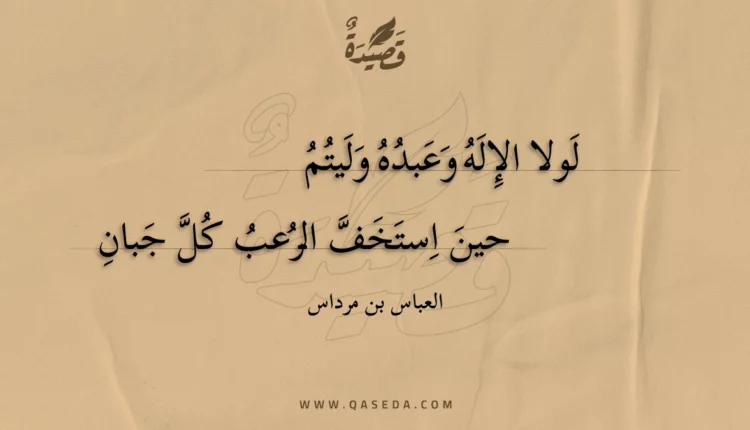 قَصِيدَةٌ
لَولا الإِلَهُ وَعَبدُهُ وَلَيتُمُ
حينَ اِستَخَفَّ الرُعبُ كُلَّ جَبانِ
العباس بن مرداس
WWW.QASEDA.COM